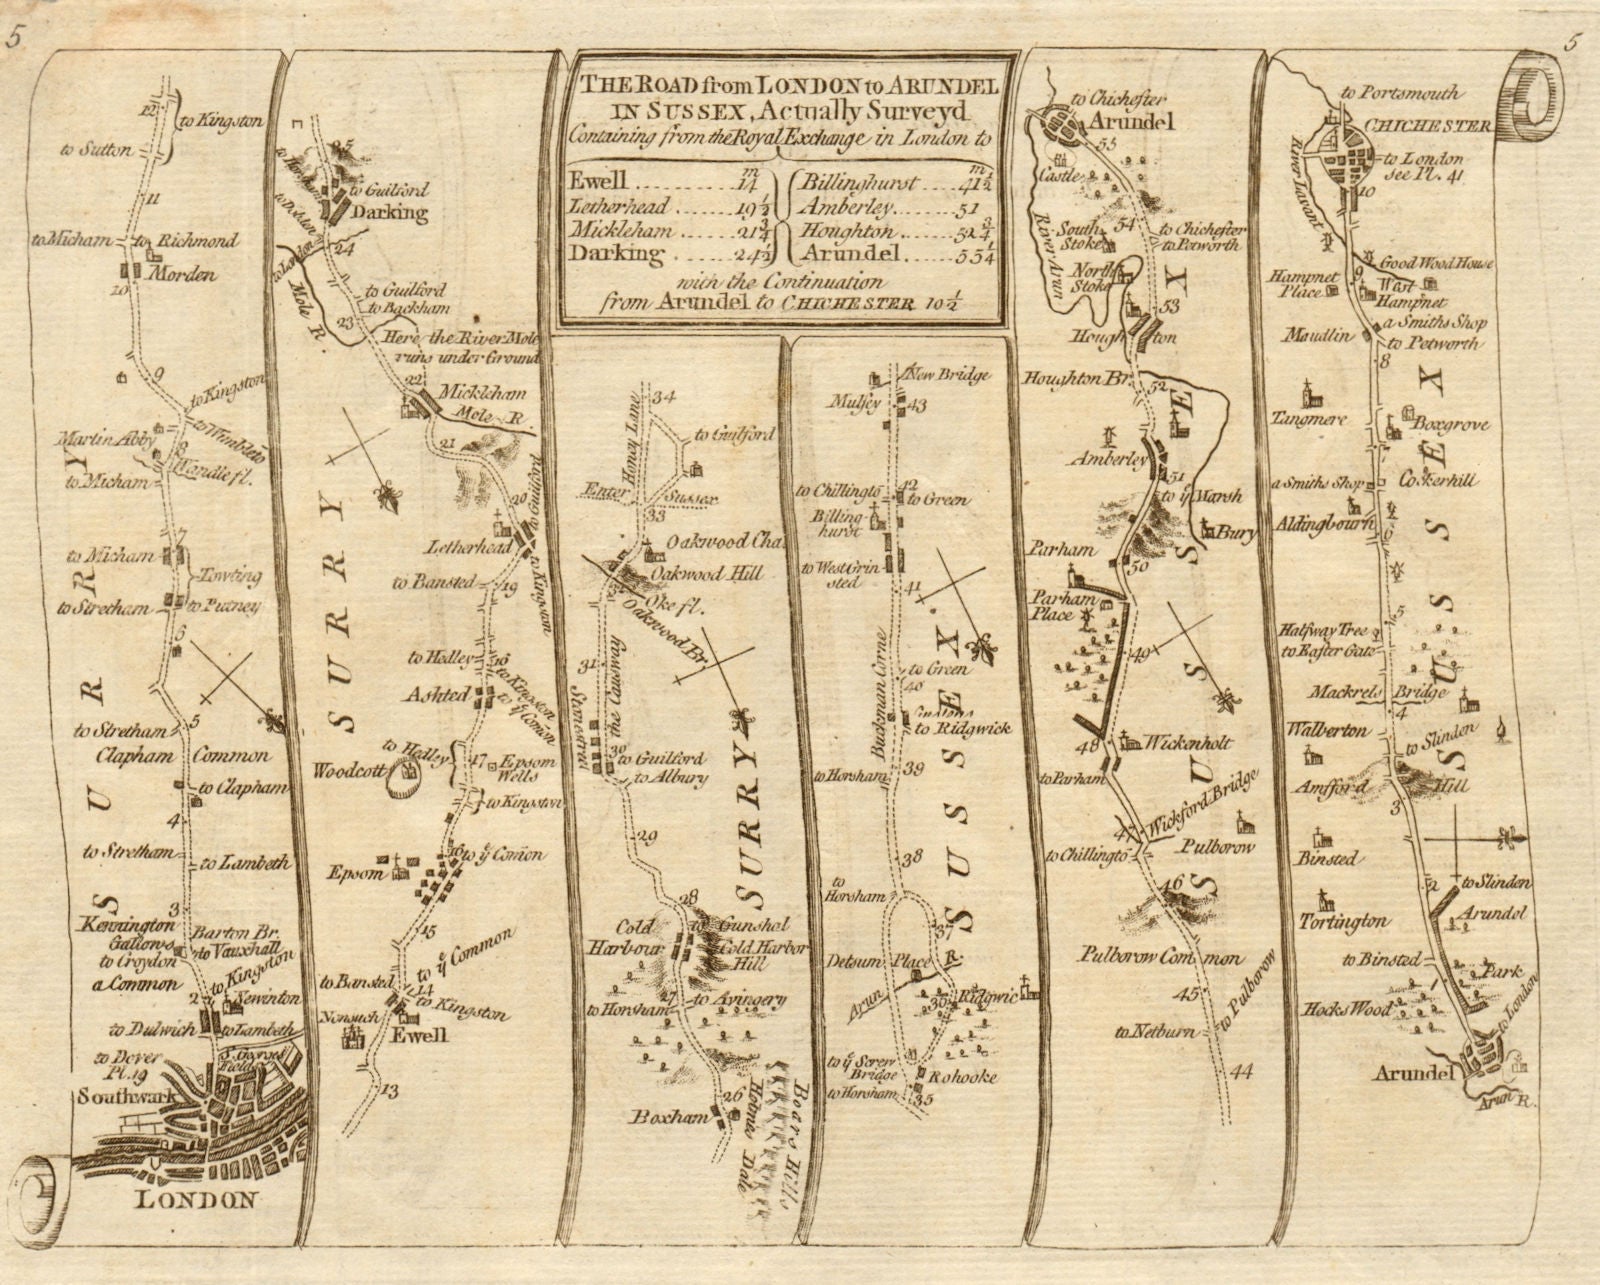 5
5
THE ROAD from LONDON to ARUNDEL
IN SUSSEX, Actually Survey'd
Containing from the Royal Exchange in London to
m
Ewell ........ 14
Letherhead ...... 19½
Mickleham ...... 21¾
Darking ...... 24½
m
Billinghurst .... 41½
Amberley ...... 51
Houghton ...... 52¾
Arundel ...... 55¼
with the Continuation
from Arundel to CHICHESTER 10½
12
to Kingston
to Sutton
11
to Micham
to Richmond
Morden
10
9
to Kingston
to Wimbleto
Martin Abby
8
Wandle fl.
to Micham
7
to Micham
Towting
to Stretham
to Putney
6
SURRY
5
to Stretham
Clapham Common
to Clapham
4
to Stretham
to Lambeth
3
Kennington
Gallows
Barton Br.
to Vauxhall
to Croydon
to Kingston
a Common
2
Newinton
to Dulwich
to Lambeth
to Dover
Pl. 19
St. Georges
Field
Southwark
LONDON
25
to Horsham
to Guilford
Darking
to Dorkin
24
to London
Mole R.
to Guilford
to Backham
23
Here the River Mole
runs under Ground
22
Mickleham
Mole R.
21
20
to Guilford
Letherhead
to Kingston
to Bansted
19
SURRY
to Hedley
18
to Kingston
Ashted
to ye Comon
to Hedley
17
Epsom
Wells
Woodcott
to Kingston
16
to ye Comon
Epsom
15
to ye Common
to Bansted
14
to Kingston
Nonsuch
Ewell
13
34
Honey Lane
to Guilford
Enter Sussex
33
Oakwood Cha.
Oakwood Hill
Oke fl.
Oakwood Br.
31
the Causway
Stanestreet
30
to Guilford
to Albury
29
SURRY
28
Cold
Harbour
to Gunshol
Cold Harbor
Hill
27
to Avingery
to Horsham
26
Boxham
Holmes Dale
Boars Hills
New Bridge
Mulsey
43
42
to Chillingto
to Green
Billing-
hurst
to West Grin
sted
41
Buckman Corne
to Green
40
to Ridgwick
SUSSEX
39
to Horsham
38
to
Horsham
37
Detsum Place
Arun R.
36
Ridgwic
to ye Screw
Bridge
Rohooke
to Horsham
35
to Chichester
Arundel
55
Castle
River Arun
South
Stoke
54
to Chichester
to Petworth
North
Stoke
53
Houghton
Houghton Br.
52
Amberley
51
to ye Marsh
Bury
Parham
50
Parham
Place
49
SUSSEX
48
Wickenholt
to Parham
47
Wickford Bridge
Pulborow
to Chillingto
46
Pulborow Common
45
to Pulborow
to Netburn
44
to Portsmouth
CHICHESTER
River Lavant
to London
see Pl. 41
10
Good Wood House
Hampnet
Place
9
West
Hampnet
a Smiths Shop
Maudlin
to Petworth
8
Tangmere
Boxgrove
a Smiths Shop
Cockerhill
Aldingbourn
6
5
Halfway Tree
to Easter Gate
Mackrels Bridge
4
Walberton
to Slinden
SUSSEX
Amfford
Hill
3
Binsted
2
to Slinden
Tortington
Arundel
to Binsted
Park
Hocks Wood
to London
Arundel
Arun R.